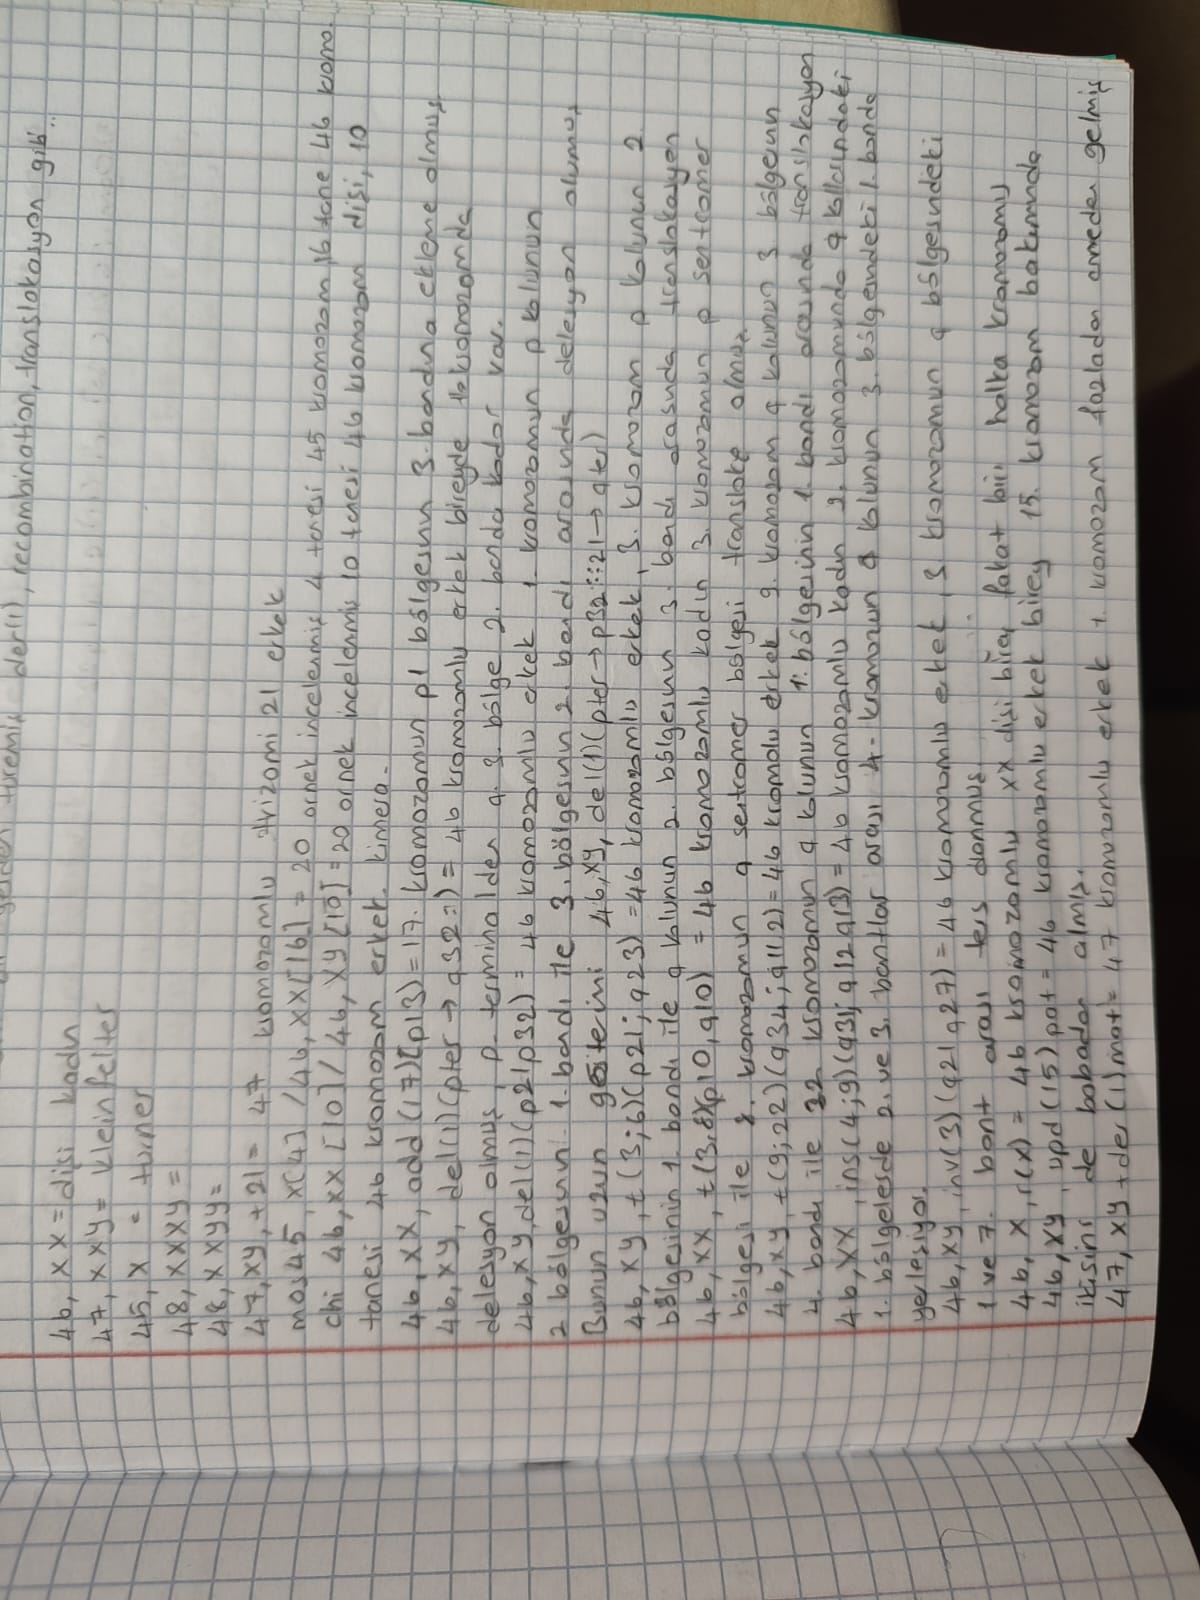 türemiş der(1), recombination, translokasyon gibi..
46, XX = dişi kadın
47, XXY = kleinfelter
45, X = turner
48, XXXY =
48, XXYY =
47, XY, +21 = 47 kromozomlu trizomi 21 erkek
mos45, X[4] / 46, XX[16] = 20 örnek incelenmiş 4 tanesi 45 kromozom 16 tane 46 kromo.
chi 46, XX [10] / 46, XY [10] = 20 örnek incelenmiş 10 tanesi 46 kromozom dişi, 10
tanesi 46 kromozom erkek. kimera.
46, XX, add(17)(p13) = 17. kromozomun p1 bölgesinin 3. bandına ekleme olmuş
46, XY, del(1)(pter → q32::) = 46 kromozomlu erkek bireyde 1. kromozomda
delesyon olmuş, p terminalden q 3. bölge 2. banda kadar var.
46, XY, del(1)(p21p32) = 46 kromozomlu erkek 1. kromozomun p kolunun
2 bölgesinin 1. bandı ile 3. bölgesinin 2. bandı arasında delesyon olumuş
Bunun uzun gösterimi 46, XY, del(1)(pter → p32::21 → qter)
46, XY, t(3;6)(p21;q23) = 46 kromozomlu erkek, 3. kromozom p kolunun 2
bölgesinin 1. bandı ile q kolunun 2. bölgesinin 3. bandı arasında translokasyon
46, XX, t(3,8)(p10,q10) = 46 kromozomlu kadın 3. kromozomun p sentromer
bölgesi ile 8. kromozomun q sentromer bölgesi transloke olmuş
46, XY, t(9;22)(q34;q112) = 46 kromolu erkek 9. kromozom q kolunun 3 bölgenin
4. bandı ile 22 kromozomun q kolunun 1. bölgesinin 1. bandı arasında translokasyon
46, XX, ins(4;9)(q31;q12q13) = 46 kromozomlu kadın 9. kromozomunda q kollarındaki
1. bölgelesde 2. ve 3. bantlar arası 4. kromozun q kolunun 3. bölgesindeki 1. banda
yerleşiyor.
46, XY, inv(3)(q21q27) = 46 kromozomlu erkek, 3 kromozomun q bölgesindeki
1 ve 7. bant arası ters dönmüş.
46, X, r(X) = 46 kromozomlu XX dişi birey fakat biri halka kromozomu
46, XY, upd(15)pat = 46 kromozomlu erkek birey 15. kromozom bakımında
ikisini de babadan almış.
47, XY + der(1)mat = 47 kromuzomlu erkek 1. kromozom fazladan anneden gelmiş